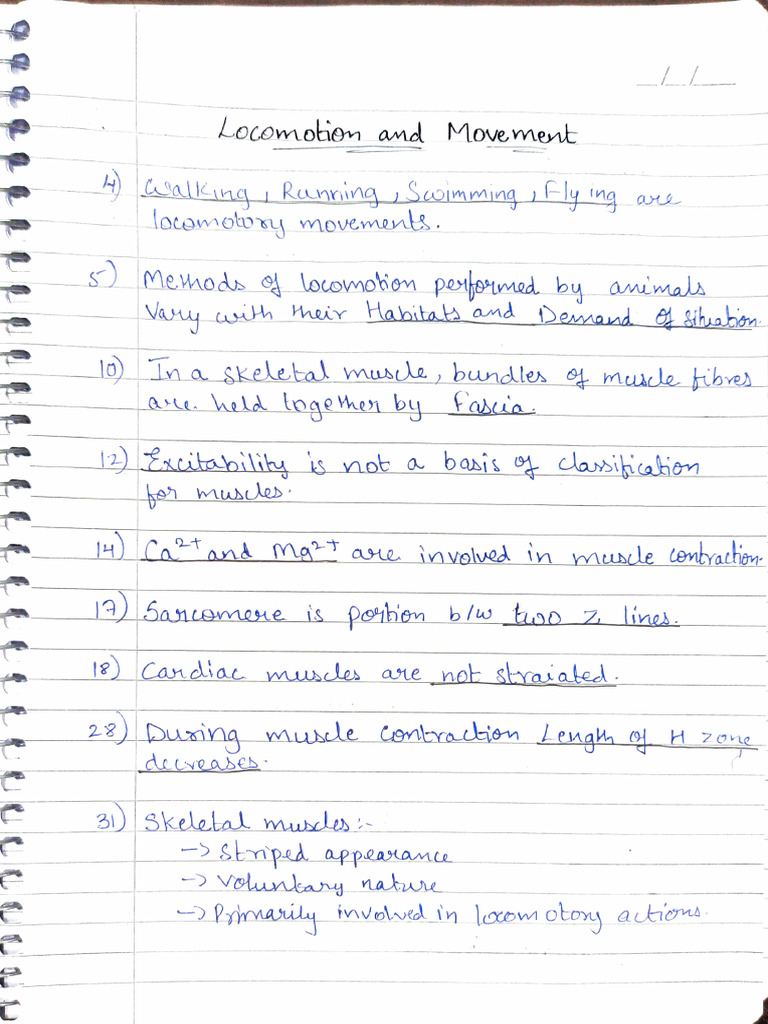 _/_/_
Locomotion and Movement
4) Walking, Running, Swimming, Flying are
locomotory movements.
5) Methods of locomotion performed by animals
Vary with their Habitats and Demand of situation.
10) In a skeletal muscle, bundles of muscle fibres
are held together by fascia.
12) Excitability is not a basis of classification
for muscles.
14) Ca²⁺ and Mg²⁺ are involved in muscle contraction.
17) Sarcomere is portion b/w two Z lines.
18) Cardiac muscles are not straiated.
28) During muscle contraction Length of H zone
decreases.
31) Skeletal muscles:-
-> Striped appearance
-> Voluntary nature
-> Primarily involved in locomotory actions.